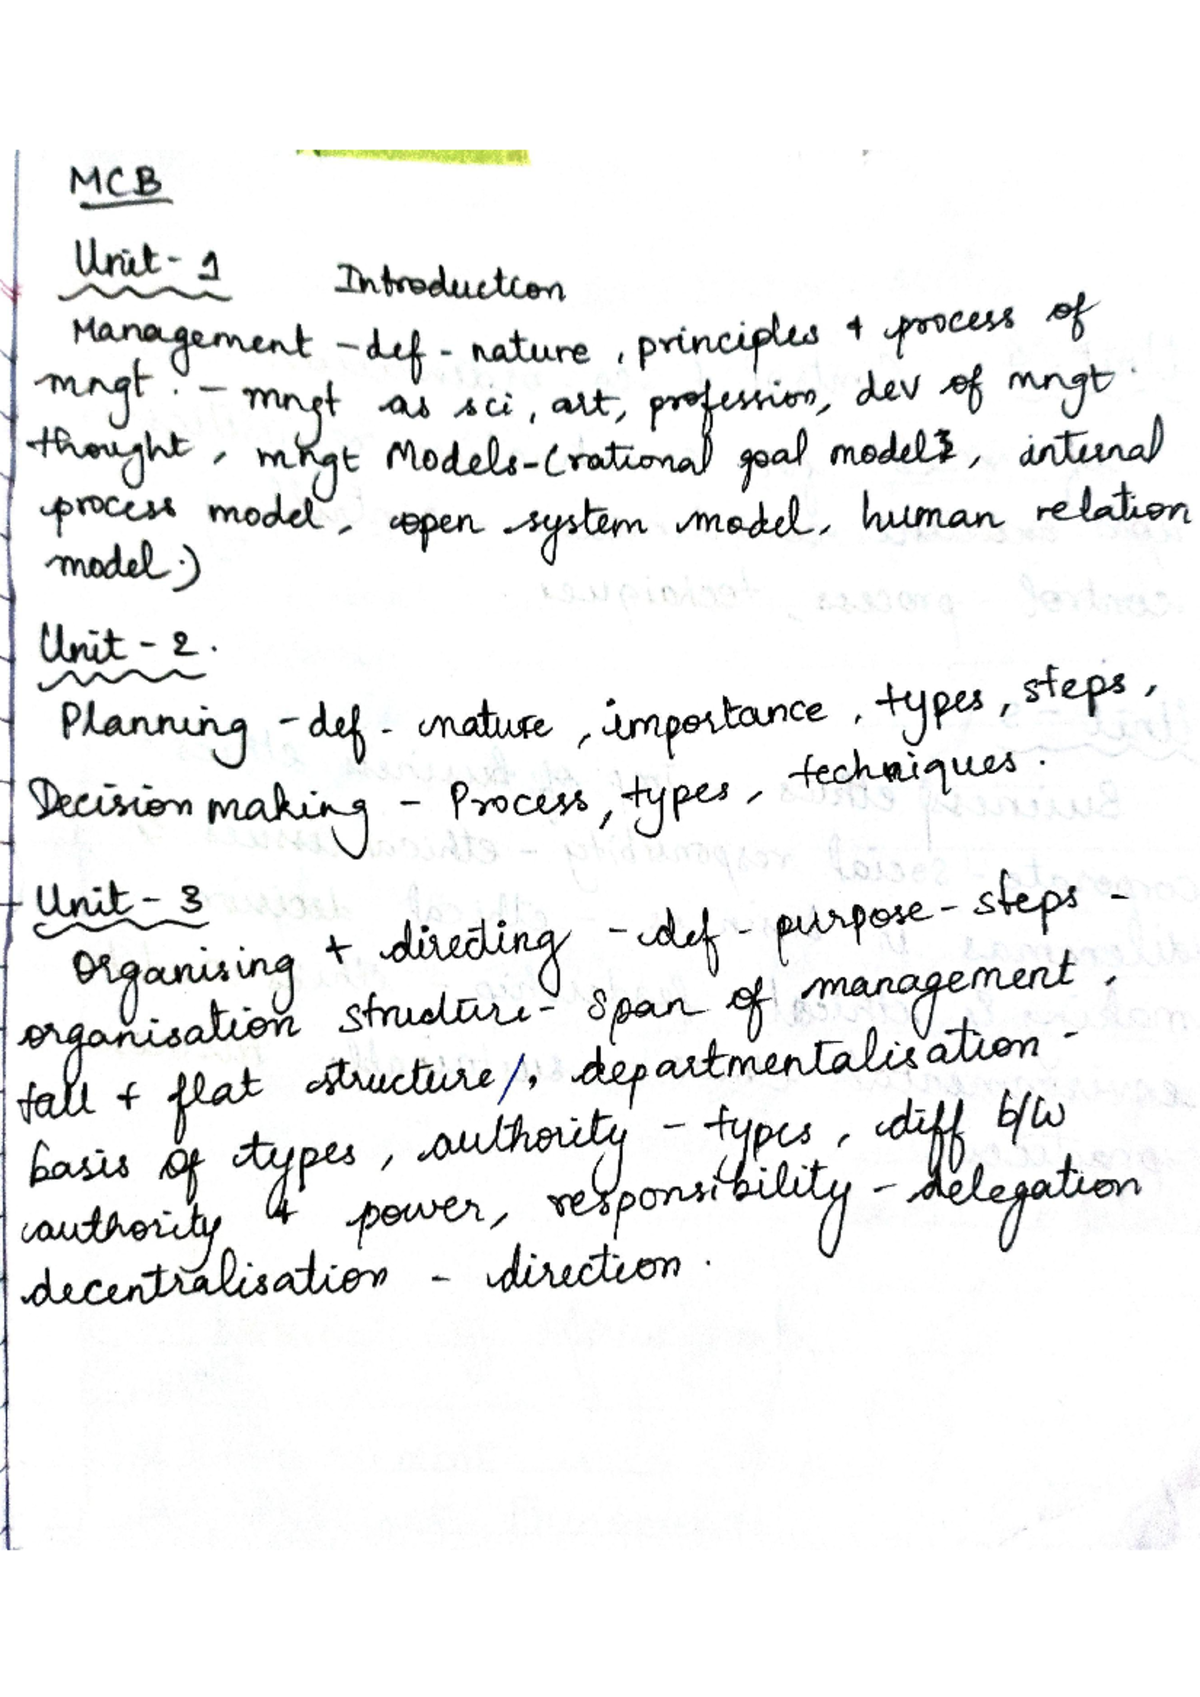 MCB
Unit - 1 Introduction
Management - def - nature, principles + process of
mngt. - mngt as sci, art, profession, dev of mngt
thought, mngt Models - (rational goal model, internal
process model, open system model, human relation
model.)
Unit - 2.
Planning - def - nature, importance, types, steps,
Decision making - Process, types, techniques.
Unit - 3
Organising + directing - def - purpose - steps -
organisation structure - span of management,
tall + flat structure/, departmentalisation -
basis of types, authority - types, diff b/w
authority & power, responsibility - delegation
decentralisation - direction.